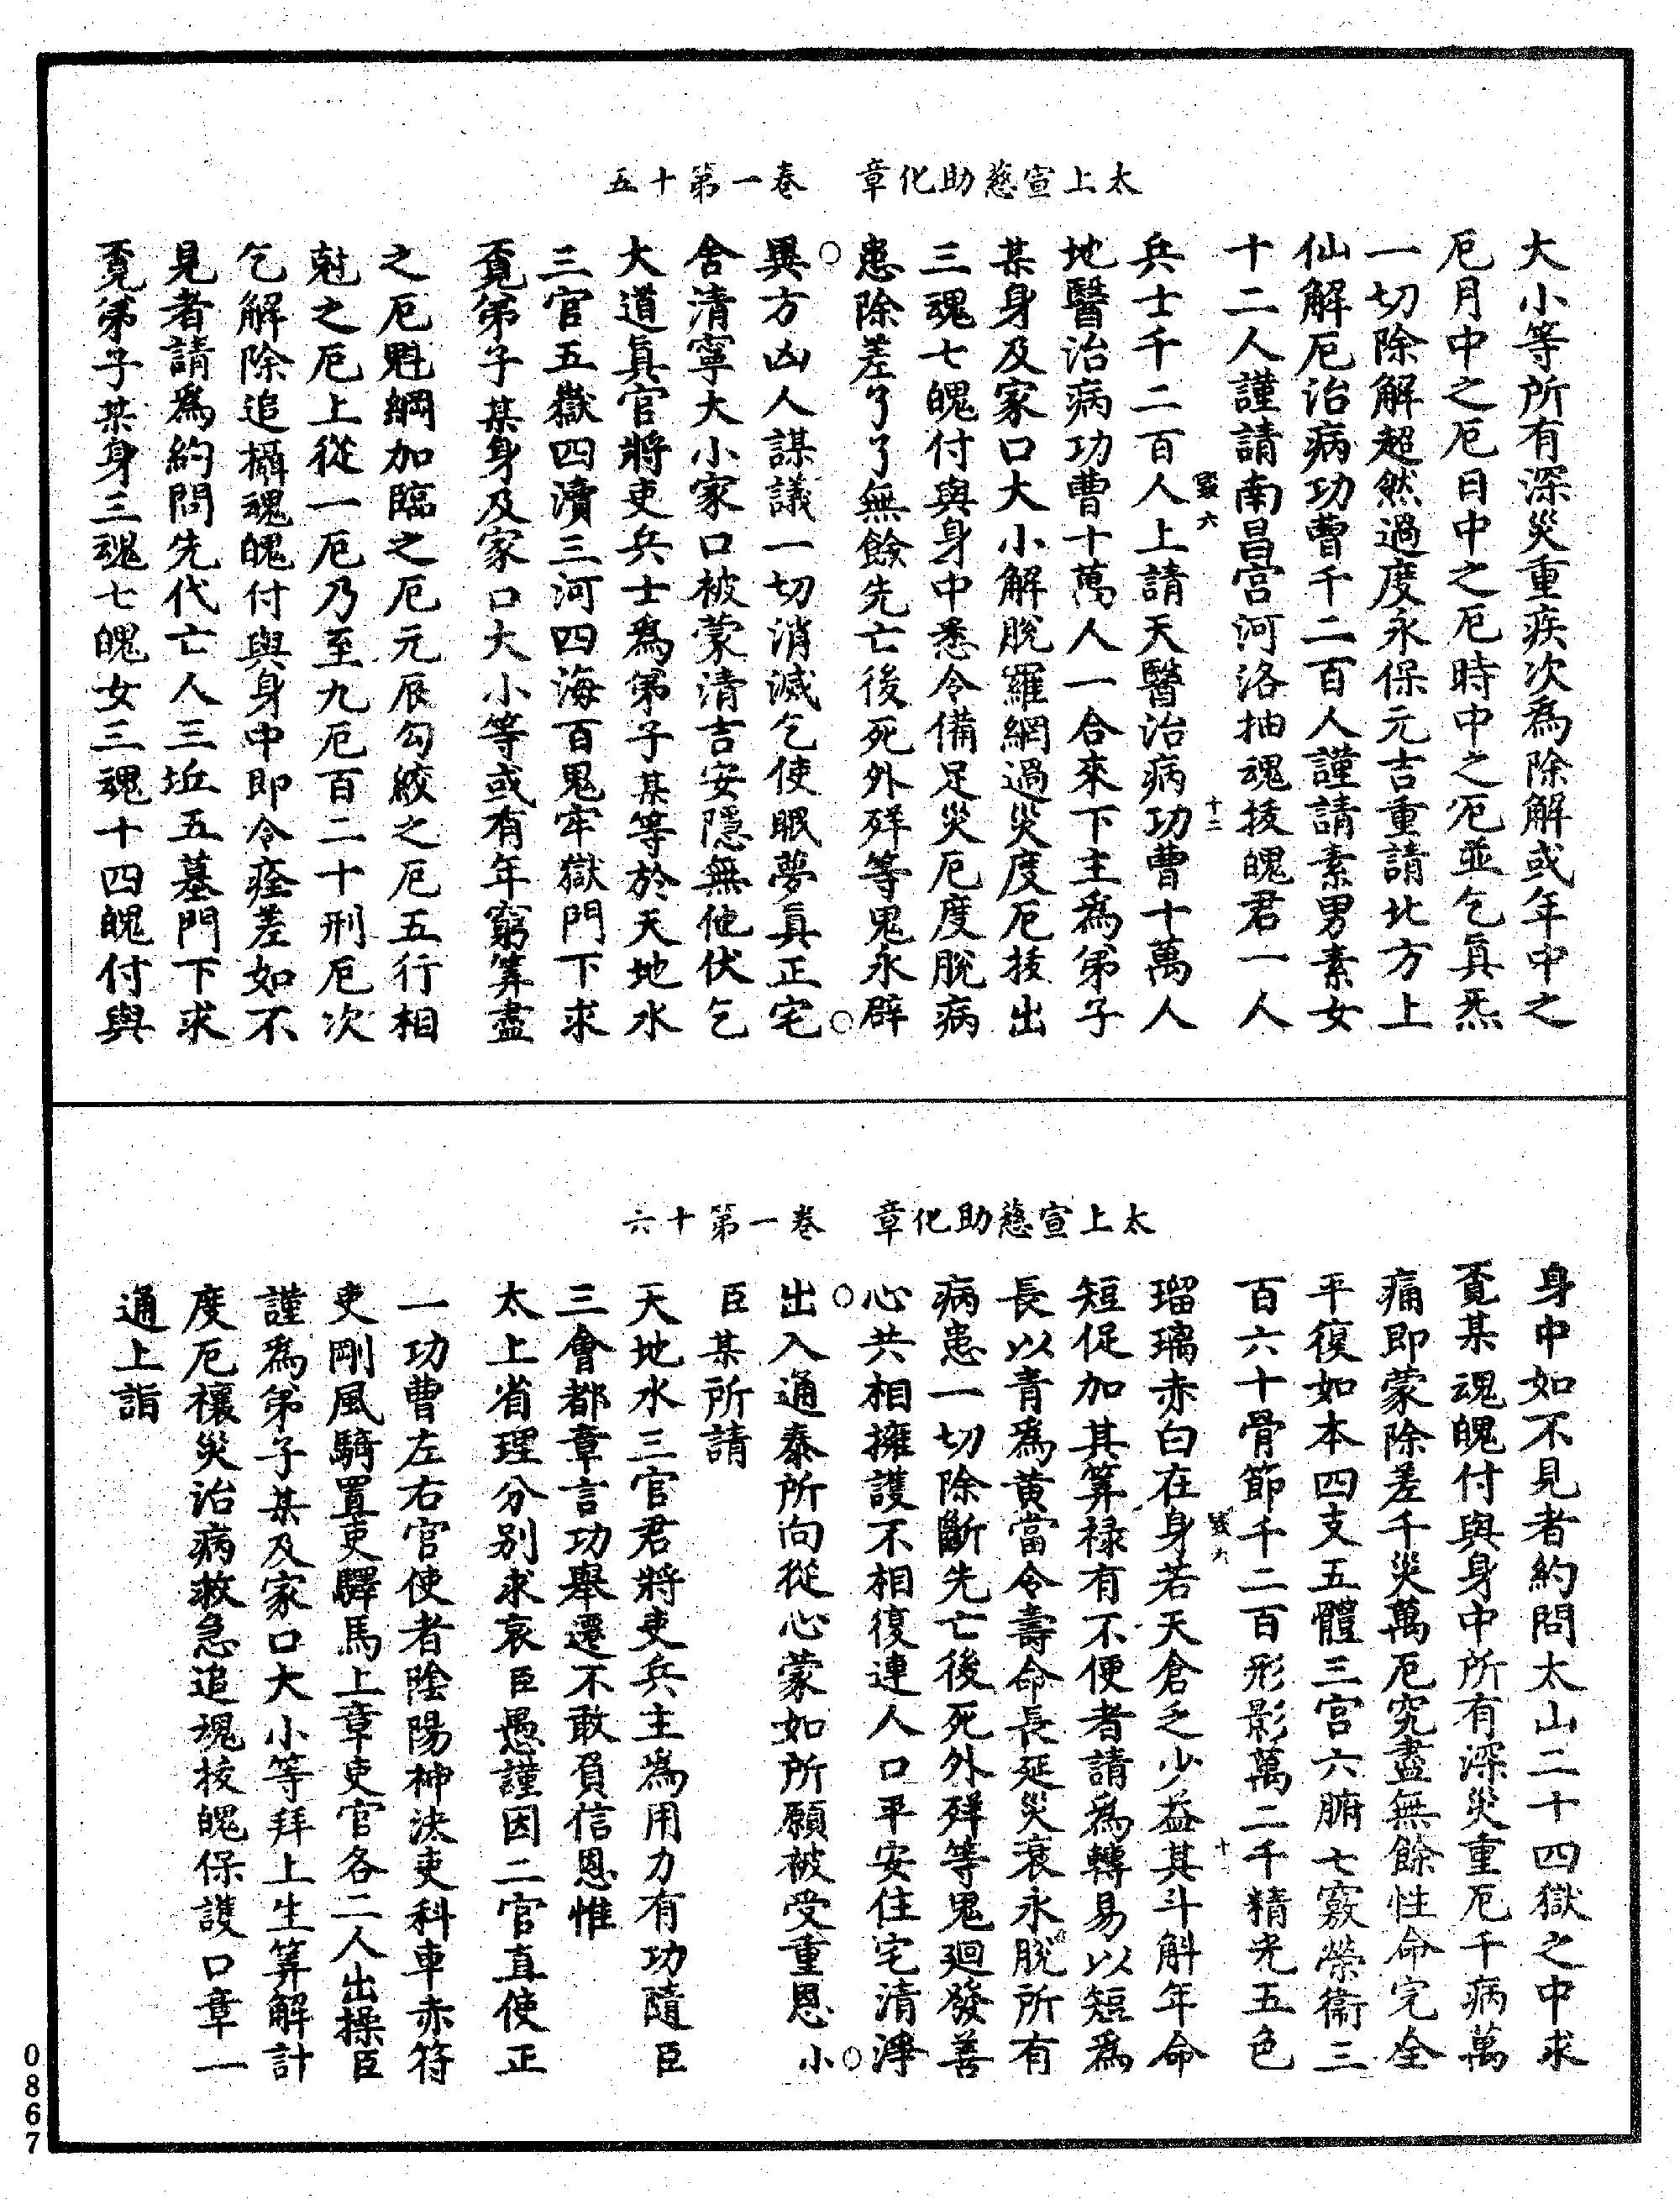 太上宣慈助化章　卷一第十五
大小等所有深災重疾次爲除解或年中之
厄月中之厄日中之厄時中之厄並乞真炁
一切除解超然過度永保元吉重請北方上
仙解厄治病功曹千二百人謹請素男素女
十二人謹請南昌宮河洛抽魂拔魄君一人
六
十二
兵士千二百人上請天醫治病功曹十萬人
地醫治病功曹十萬人一合來下主爲弟子
某身及家口大小解脫羅網過災度厄拔出
三魂七魄付與身中悉令備足災厄度脫病
患除差了了無餘先亡後死外殍等鬼永辟
○異方凶人謀議一切消滅乞使眠夢真正宅○
舍清寧大小家口被蒙清吉安隱無他伏乞
大道真官將吏兵士爲弟子某等於天地水
三官五嶽四瀆三河四海百鬼牢獄門下求
覔弟子某身及家口大小等或有年窮筭盡
之厄魁綱加臨之厄元辰勾絞之厄五行相
尅之厄上從一厄乃至九厄百二十刑厄次
乞解除追攝魂魄付與身中即令痊差如不
見者請爲約問先代亡人三坵五墓門下求
覔弟子某身三魂七魄女三魂十四魄付與
太上宣慈助化章　卷一第十六
身中如不見者約問太山二十四獄之中求
覔某魂魄付與身中所有深災重厄千病萬
痛即蒙除差千災萬厄究盡無餘性命完全
平復如本四支五體三宮六腑七竅榮衞三
百六十骨節千二百形影萬二千精光五色
九
十
瑠璃赤白在身若天倉乏少益其斗斛年命
短促加其筭祿有不便者請爲轉易以短爲
長以青爲黃當令壽命長延災衰永脫所有
病患一切除斷先亡後死外殍等鬼廻發善
心共相擁護不相復連人口平安住宅清淨
○出入通泰所向從心蒙如所願被受重恩　小○
臣某所請
天地水三官君將吏兵主爲用力有功隨臣
三會都章言功舉遷不敢負信恩惟
太上省理分別求哀臣愚謹因二官直使正
一功曹左右官使者陰陽神決吏科車赤符
吏剛風騎置吏驛馬上章吏官各二人出操臣
謹爲弟子某及家口大小等拜上生筭解計
度厄禳災治病救急追魂拔魄保護口章一
通上詣
0867